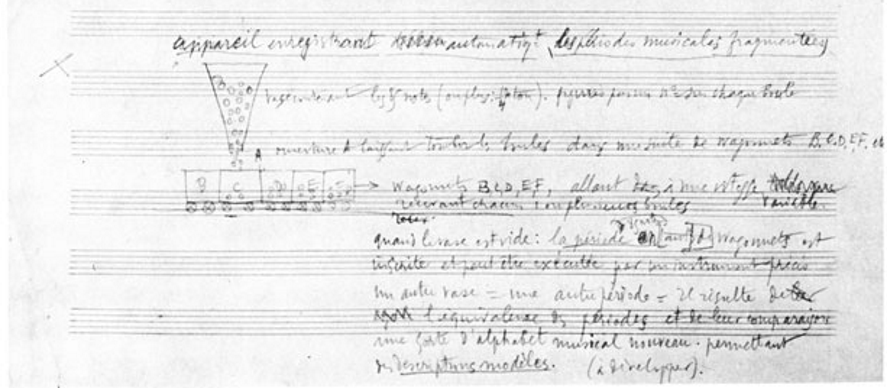 appareil enregistrant automatiqt les périodes musicales fragmentées
Vase contenant les 89 notes (ou plus: ¼ ton). figures parmi no sur chaque boule
A ouverture A laissant tomber les boules dans une suite de wagonnets B, C, D, E, F, etc
B C D E F
wagonnets B C D, E F, allant à une vitesse variable
recevant chacun 1 ou plusieurs boules
quand le vase est vide: la période en wagonnets est
inscrite et peut être exécutée par un instrument précis
un autre vase = une autre période = il résulte de
l'équivalence des périodes et de leur comparaison
une sorte d'alphabet musical nouveau. permettant
des descriptions modèles. (à développer).